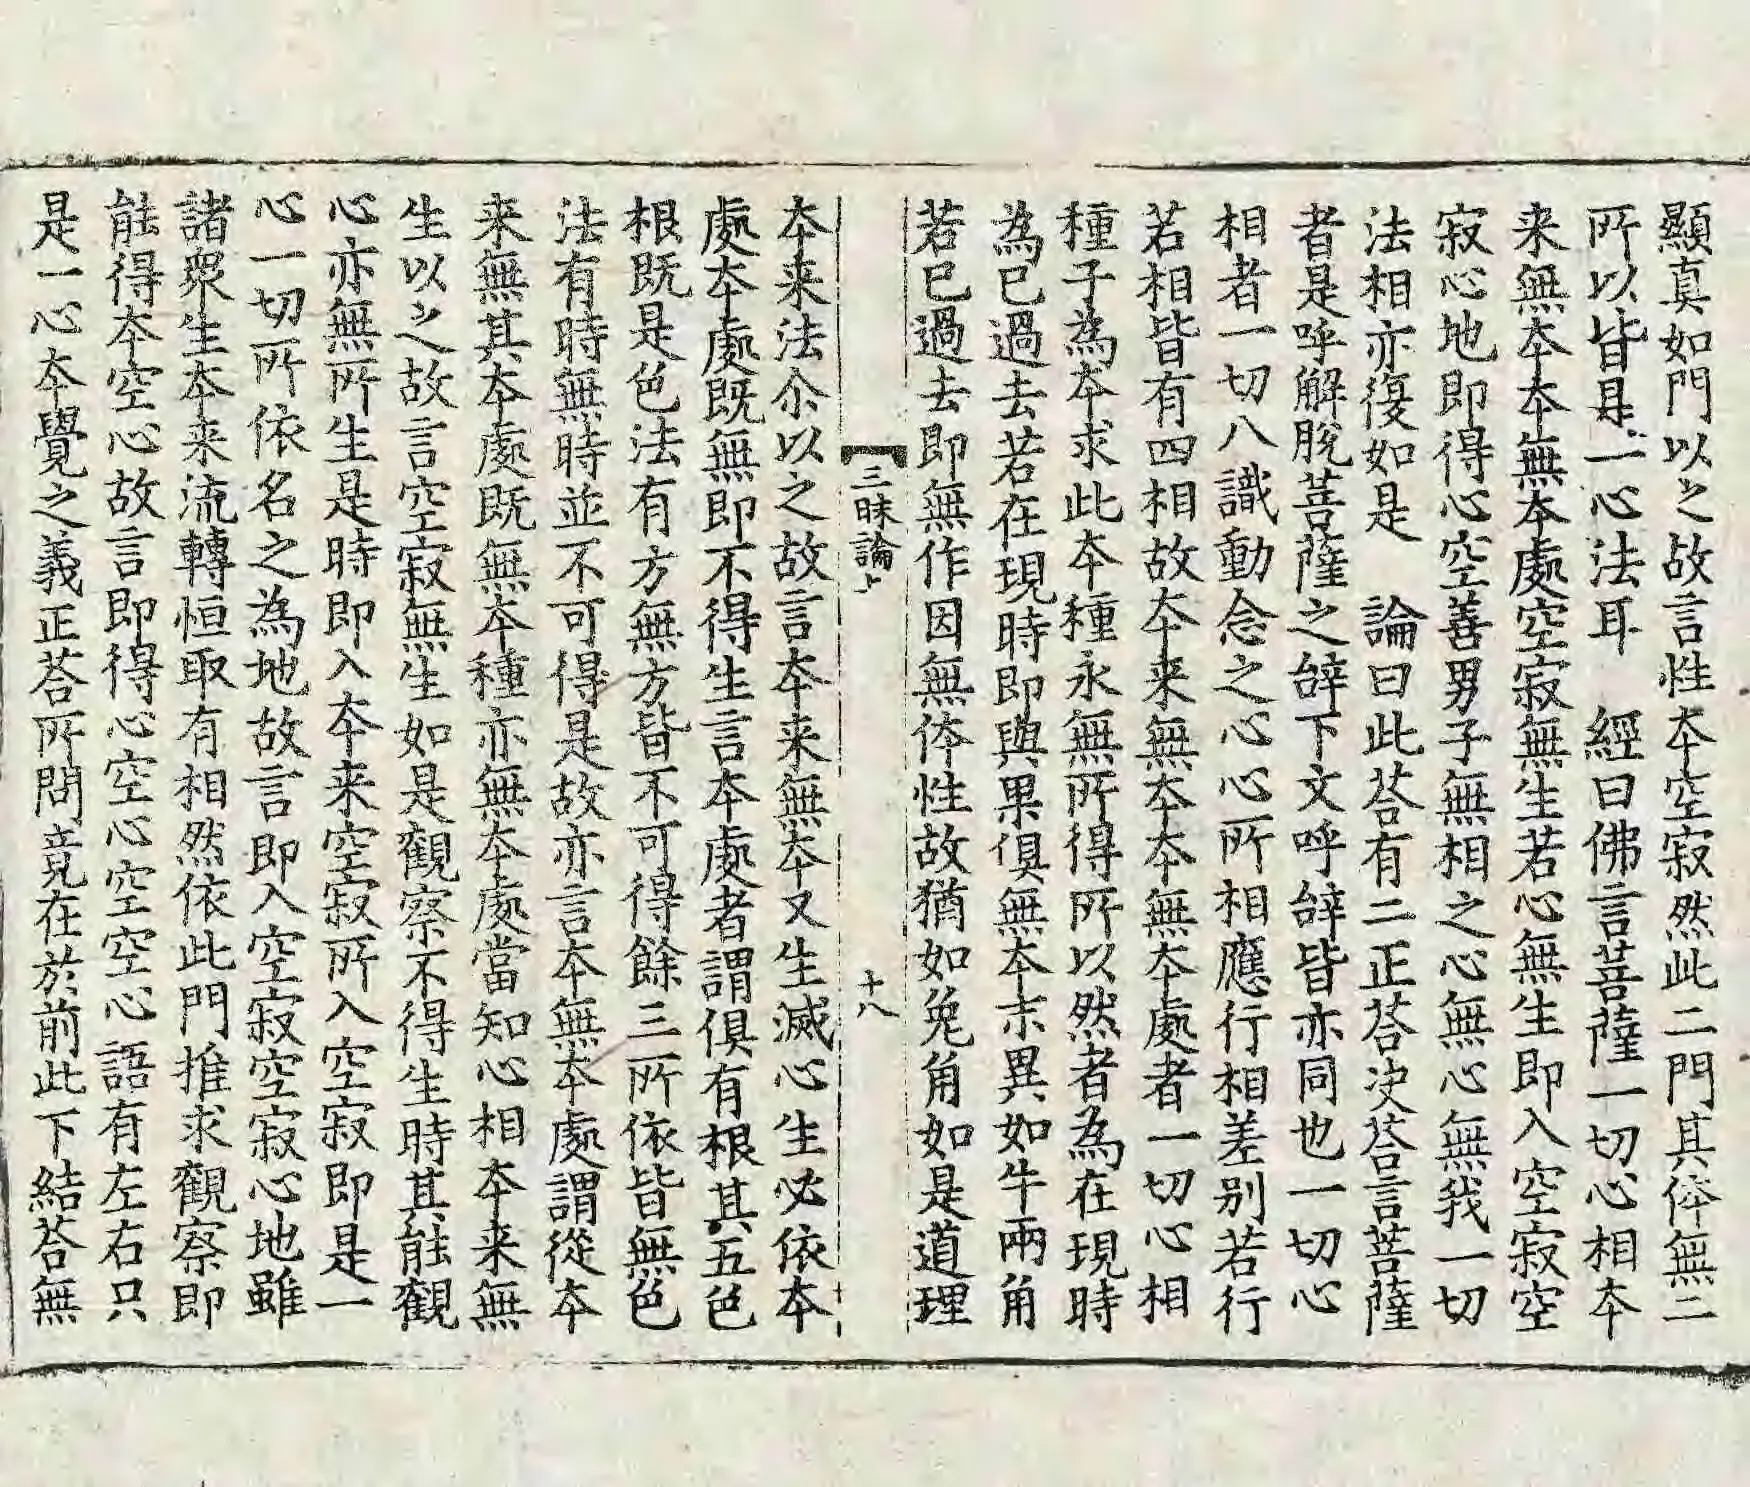 顯真如門以之故言性本空寂然此二門其体無二
所以皆是一心法耳　經曰佛言菩薩一切心相本
来無本本無本處空寂無生若心無生即入空寂空
寂心地即得心空善男子無相之心無心無我一切
法相亦復如是　論曰此荅有二正荅决荅言菩薩
者是呼解脫菩薩之辝下文呼辝皆亦同也一切心
相者一切八識動念之心心所相應行相差别若行
若相皆有四相故本来無本本無本處者一切心相
種子為本求此本種永無所得所以然者為在現時
為已過去若在現時即與果俱無本末異如牛兩角
若已過去即無作因無体性故猶如兔角如是道理
三昧論上　十八
本来法尒以之故言本来無本又生滅心生必依本
處本處既無即不得生言本處者謂俱有根其五色
根既是色法有方無方皆不可得餘三所依皆無色
法有時無時並不可得是故亦言本無本處謂從本
来無其本處既無本種亦無本處當知心相本来無
生以之故言空寂無生如是觀察不得生時其能觀
心亦無所生是時即入本来空寂所入空寂即是一
心一切所依名之為地故言即入空寂空寂心地雖
諸衆生本来流轉恒取有相然依此門推求觀察即
能得本空心故言即得心空心空空心語有左右只
是一心本覺之義正荅所問竟在於前此下結荅無